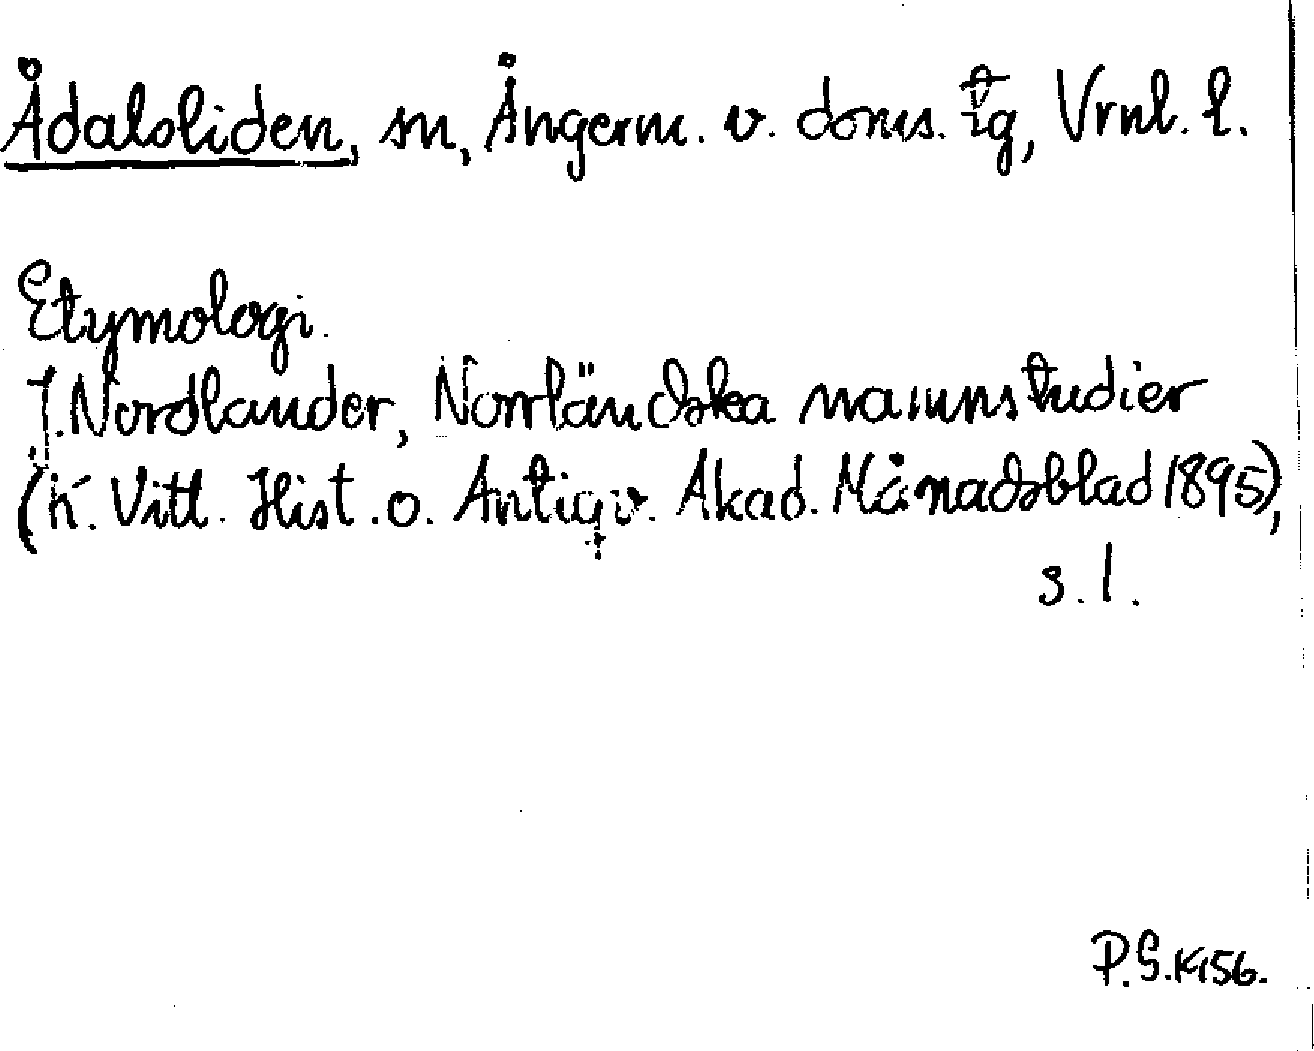 Ådalsliden, sn, Ångerm. v. doms. tg, Vrnl. l.
Etymologi.
J. Nordlander, Norrländska namnstudier
(K. Vitt. Hist. o. Antiqv. Akad. Månadsblad 1895),
s. 1.
P.S. 1956.